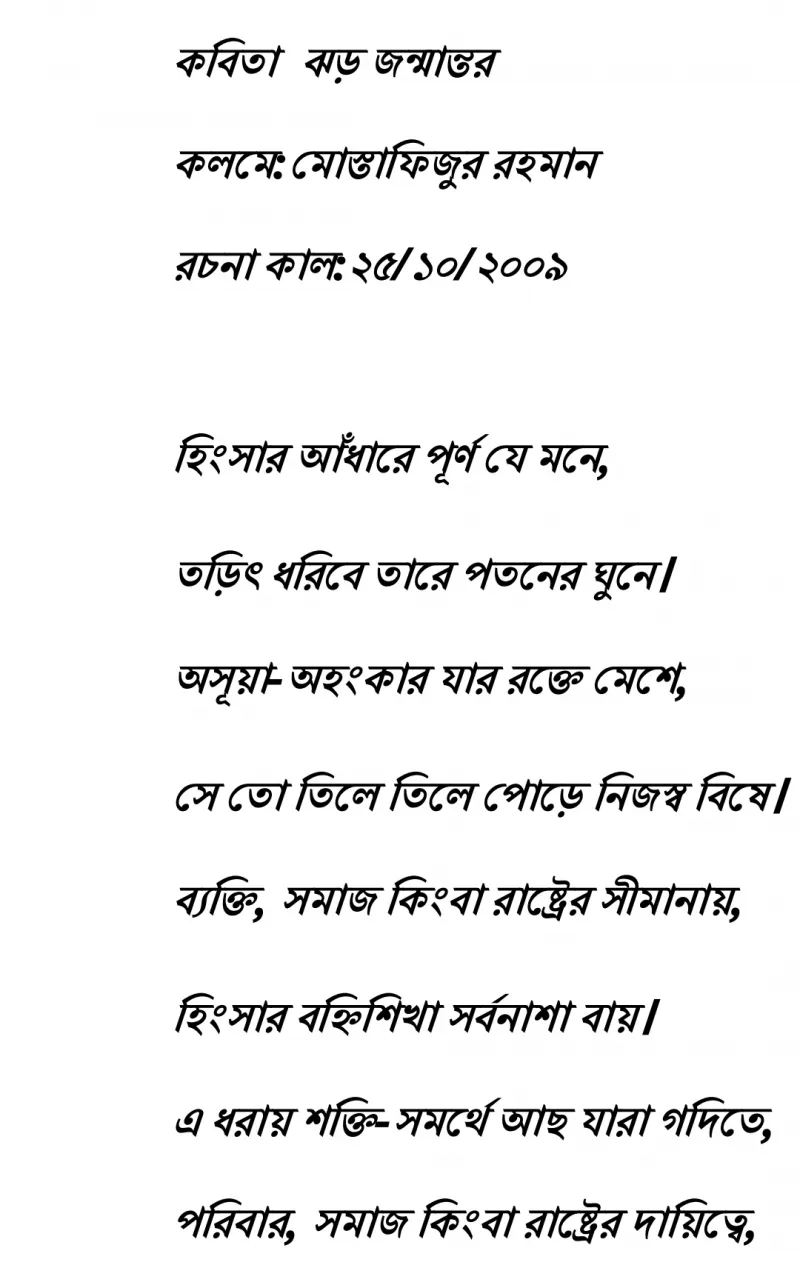 কবিতা ঝড় জন্মান্তর
কলমে: মোস্তাফিজুর রহমান
রচনা কাল: ২৫/১০/২০০৯
হিংসার আঁধারে পূর্ণ যে মনে,
তড়িৎ ধরিবে তারে পতনের ঘুনে।
অসূয়া- অহংকার যার রক্তে মেশে,
সে তো তিলে তিলে পোড়ে নিজস্ব বিষে।
ব্যক্তি, সমাজ কিংবা রাষ্ট্রের সীমানায়,
হিংসার বহ্নিশিখা সর্বনাশা বায়।
এ ধরায় শক্তি- সমর্থে আছ যারা গদিতে,
পরিবার, সমাজ কিংবা রাষ্ট্রের দায়িত্বে,